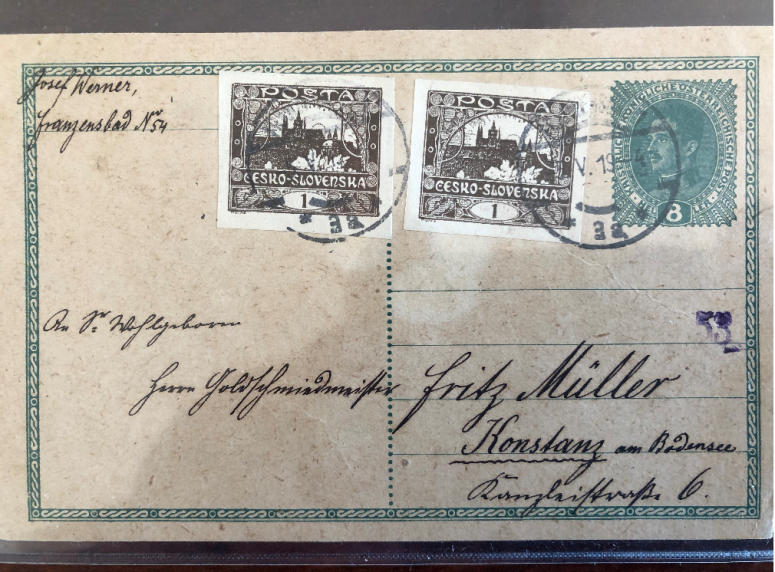 Josef Werner,
Franzensbad Nr 54
POSTA
CESKO-SLOVENSKA
1
POSTA
CESKO-SLOVENSKA
1
KAISERLICHE KÖNIGLICHE ÖSTERREICHISCHE POST
8
V. 19
An Sr. Wohlgeboren
Herrn Goldschmiedmeister Fritz Müller
Konstanz am Bodensee
Kanzleistraße 6.